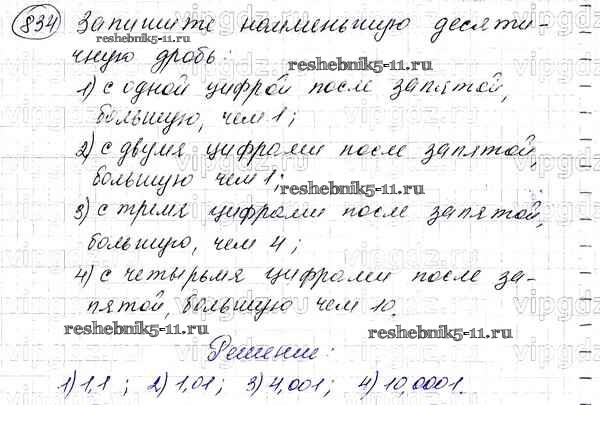 834 Запишите наименьшую десяти-
reshebnik5-11.ru
чную дробь:
reshebnik5-11.ru
1) с одной цифрой после запятой,
большую, чем 1;
2) с двумя цифрами после запятой,
большую чем 1;
reshebnik5-11.ru
3) с тремя цифрами после запятой,
большую, чем 4;
4) с четырьмя цифрами после за-
пятой, большую чем 10.
reshebnik5-11.ru
reshebnik5-11.ru
Решение:
1) 1,1 ; 2) 1,01 ; 3) 4,001 ; 4) 10,0001.